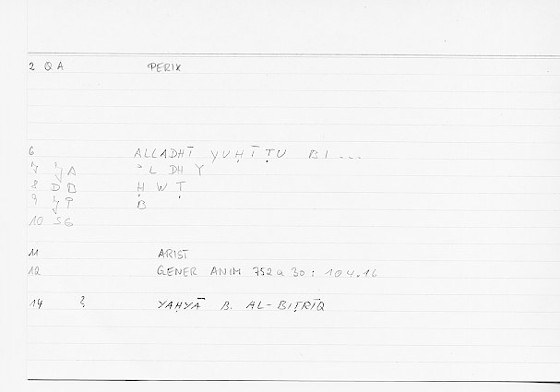 2 QA PERIX
6 ALLADHĪ YUḤĪṬU BI...
7 ʾ L DH Y
8 DB Ḥ W Ṭ
9 B
10 SG
11 ARIST
12 GENER ANIM 752 a 30: 104.16
14 ? YAḤYĀ B. AL-BIṬRĪQ